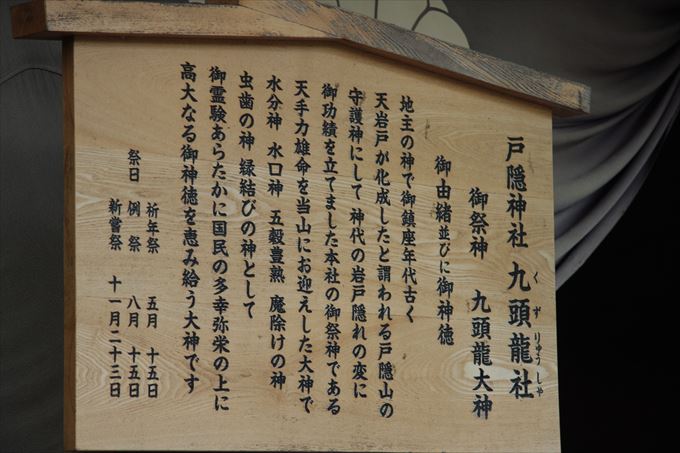 戸隠神社 九頭龍社
くずりゅうしゃ
御祭神 九頭龍大神
御由緒並びに御神徳
地主の神で御鎮座年代古く
天岩戸が化成したと謂われる戸隠山の
守護神にして 神代の岩戸隠れの変に
御功績を立てました本社の御祭神である
天手力雄命を当山にお迎えした大神で
水分神 水口神 五穀豊熟 魔除けの神
虫歯の神 縁結びの神として
御霊験あらたかに国民の多幸弥栄の上に
高大なる御神徳を恵み給う大神です
祈年祭 五月 十五日
祭日 例祭 八月 十五日
新嘗祭 十一月二十三日